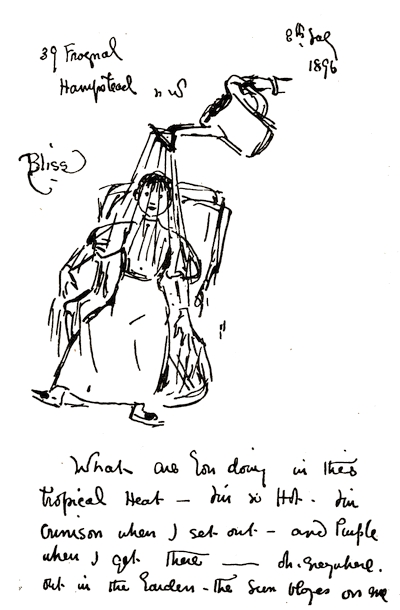 39 Frognal
Hampstead N W
8th July
1896
Bliss
What are You doing in this
tropical Heat — I'm so Hot. I'm
Crimson when I set out — and Purple
when I get There — oh. everywhere.
out in the Garden - the Sun blazes on me